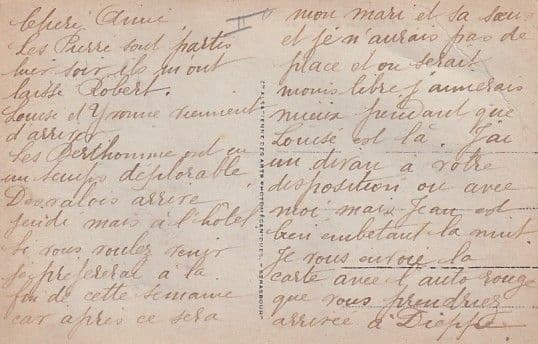 Chers Amis
Les Pierre sont partis
hier soir ils m'ont
laissé Robert.
Louise et Yvonne viennent
d'arriver
Les Berthomme ont eu
un temps déplorable
arrive
jeudi mais à l'hôtel
Si vous voulez venir
je préférerai à la
fin de cette semaine
car après ce sera
mon mari et sa soeur
et je n'aurais pas de
place et on serait
moins libre j'aimerais
mieux pendant que
Louise est là. J'ai
un divan a votre
disposition ou avec
moi mais Jean est
bien embetant la nuit
Je vous envoie la
carte avec l'auto rouge
que vous prendriez
arrivée à Dieppe